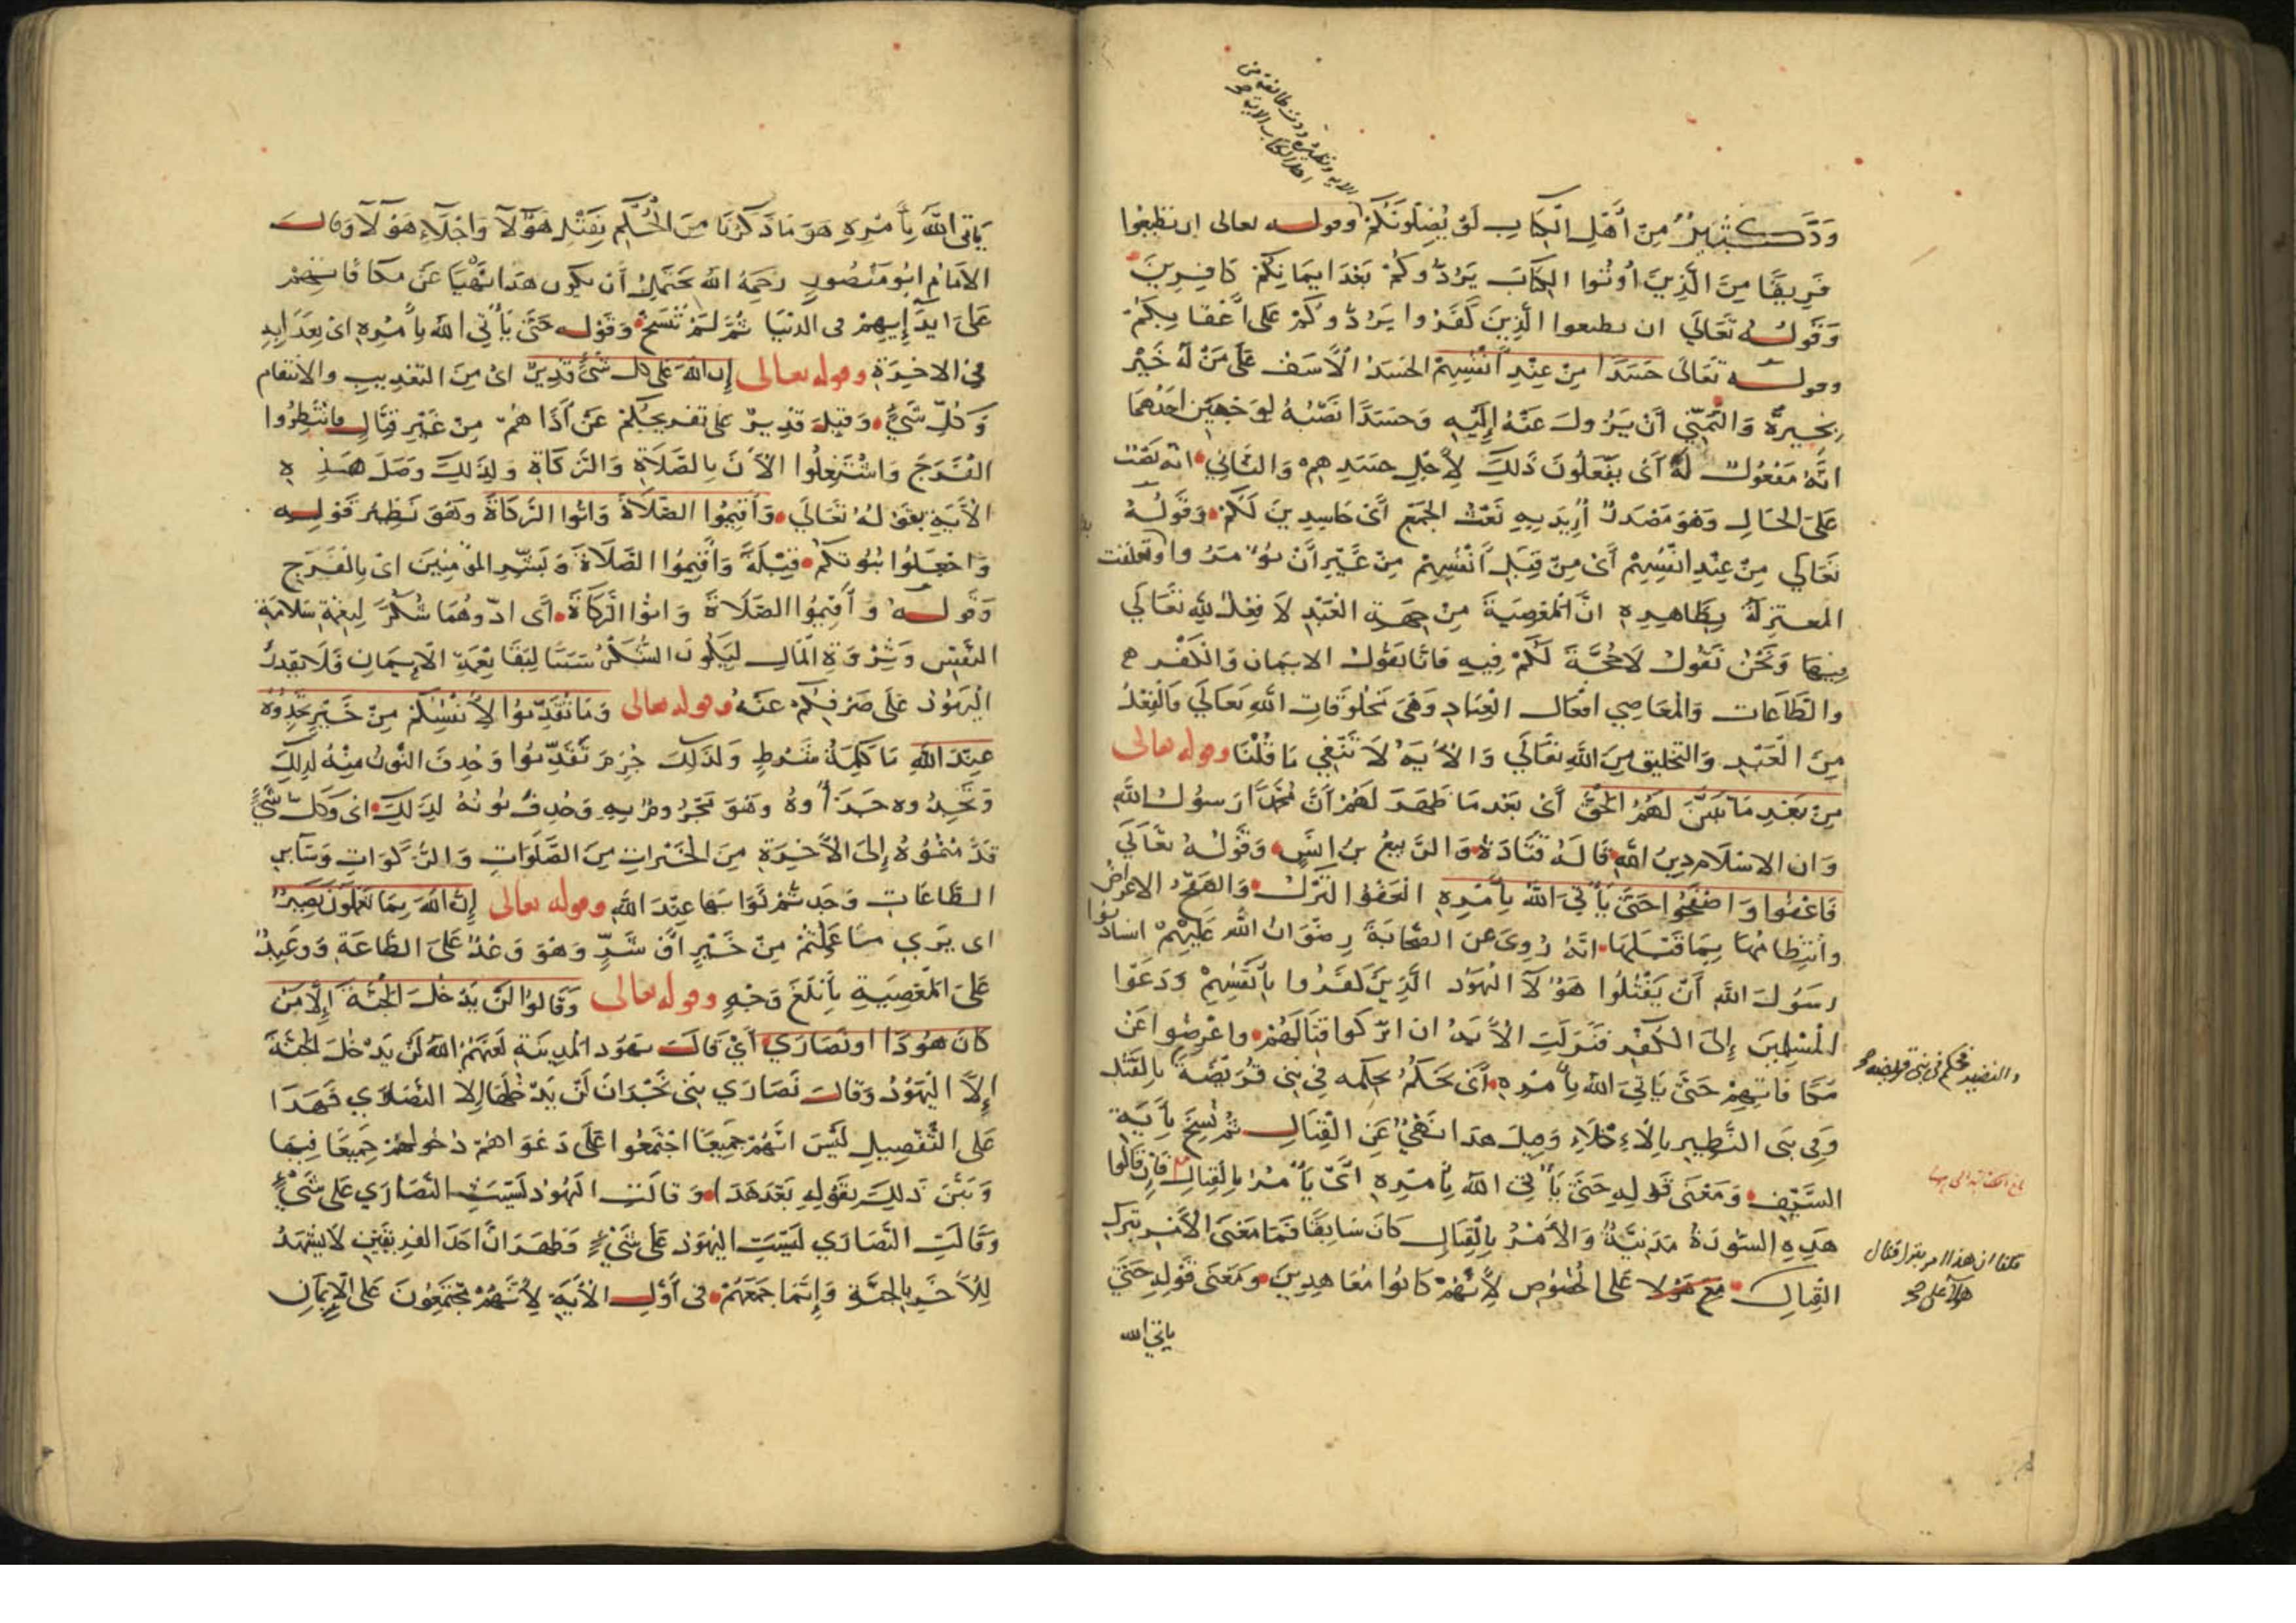 الآية ونظيره ودت طائفة من
اهل الكتاب الآية صح
وَدَّ كَثِيرٌ مِنْ أَهْلِ الكِتَابِ لَوْ يُضِلُّونَكُمْ وقوله تعالى ان تطيعوا
فَرِيقًا مِنَ الَّذِينَ أُوتُوا الكِتَابَ يَرُدُّوكُمْ بَعْدَ ايمَانِكُمْ كَافِرِينَ
وَقَولُهُ تَعَالَى ان تطيعوا الَّذِينَ كَفَرُوا يَرُدُّوكُمْ عَلى أَعْقَابِكُمْ
وقوله تَعَالَى حَسَدًا مِنْ عِنْدِ أَنْفُسِهِمْ الحَسَدُ الْأَسَفُ عَلَى مَنْ لَهُ خَيْر
بِخَيرِهِ وَالتَّمَنِّي أَنْ يَزُولَ عَنْهُ إِلَيْهِ وَحَسَدًا نَصْبُهُ لِوَجْهَيْنِ احَدُهُمَا
انَّهُ مَفْعُولٌ لَهُ أَىْ يَفْعَلُونَ ذَلِكَ لِأَجْلِ حَسَدِهِمْ وَالثَّانِي انه نَصْب
عَلَى الحَالِ وَهُوَ مَصْدَرٌ أُرِيدَ بِهِ نَعْتُ الجَمْعِ أَىْ حَاسِدِينَ لَكُمْ وَقَولُهُ
تَعَالَى مِنْ عِنْدِ انْفُسِهِمْ أَىْ مِنْ قِبَلِ أَنْفُسِهِمْ مِنْ غَيْرِ أَنْ يُؤْمَرُوا وتعلقت
المعتزلَةُ بِظَاهِرِهِ انَّ المَعْصِيَةَ مِنْ جِهَةِ العَبْدِ لَا فِعْلَ لِلّهِ تَعَالَى
فِيهَا وَنَحْنُ نَقُولُ لَا حُجَّةَ لَكُمْ فِيهِ فَانَّا نَقُولُ الايمَان وَالْكُفْر
وَالطَّاعَات وَالمَعَاصِي افْعَال العِبَادِ وَهِيَ مَخْلُوقَاتِ اللّهِ تَعَالَى فَالْفِعْلُ
مِنَ الْعَبْدِ وَالتخليق مِنَ اللّهِ تَعَالَى وَالْآيَةُ لَا تَنْفِي مَا قُلْنَا وقوله تعالى
مِنْ بَعْدِ مَا تَبَيَّنَ لَهُمُ الحَقُّ أَىْ بَعْدَ مَا ظَهَرَ لَهُمْ أَنَّ مُحَمَّدًا رَسُولُ اللّهِ
وَان الاسْلَام دِينُ اللّهِ قَالَهُ قَتَادَةُ وَالرَّبِيعُ بنُ انَسٍ وَقَوْلُهُ تَعَالَى
فَاعْفُوا وَاصْفَحُوا حَتَّى يَأْتِيَ اللّهُ بِأَمْرِهِ العَفْوُ التَّرْكُ وَالصَّفْحُ الاعراض
وانْتِظَامُهَا بِمَا قَبْلَهَا انَّهُ رُوِيَ عَنِ الصَّحَابَةِ رِضْوَانُ اللّهِ عَلَيْهِمْ استاذنوا
رَسُولَ اللّهِ أَنْ يَقْتُلُوا هَؤُلَآ اليَهُود الَّذِينَ كَفَرُوا بِأَنْفُسِهِمْ وَدَعَوْا
المُسْلِمِينَ إِلَى الكُفْرِ فَنَزَلَتِ الْآيَةُ ان اتْرُكُوا قِتَالَهُمْ واعْرِضُوا عَنْ
مُكَافَاتِهِمْ حَتَّى يَاتِيَ اللّهُ بِأَمْرِهِ أَىْ يَحْكُمُ بحُكْمِهِ فِي بَنِي قُرَيْظَةَ بِالقَتْلِ
وَفِي بَنِي النَّظِيرِ بِالْاجْلَاءِ وَقِيلَ هَذَا نَهْيٌ عَنِ القِتَالِ ثُمَّ نُسِخَ بِآيَةِ
السَّيْفِ وَمَعْنَى قَولِهِ حَتَّى يَأْتِيَ اللّهُ بِأَمْرِهِ أَىْ يَأْمُرُ بِالقِتَالِ فَإِنْ قَالُوا
هَذِهِ السُّورَةُ مَدَنِيَّةٌ وَالْأَمْرُ بِالْقِتَالِ كَانَ سَابِقًا فَمَا مَعْنَى الْأَمْرِ بِتَرْكِ
القِتَالِ مع هَؤُلا عَلى الخُصُوصِ لِأَنَّهُمْ كَانُوا مُعَاهِدِينَ وَمَعْنَى قَولِهِ حَتَّى
ياتي الله
والنضير فحكم في بني قريظه صح
قلنا ان هذا امر بترك قتال
هؤلآ على صح
يَاتِيَ اللّهُ بِأَمْرِهِ هُوَ مَا ذَكَرْنَا مِنَ الْحُكْمِ بِقَتْلِ هَؤُلَآ وَاجْلَاءِ هَؤُلَآ وَقَالَ
الامَامُ ابُو مَنْصُورٍ رَحِمَهُ اللّهُ يَحْتَمِلُ أَنْ يكون هَذَا نَهْيًا عَنْ مُكَافَاتِهِمْ
عَلَى ايذَآئِهِمْ في الدنْيَا ثُمَّ لَمْ تُنْسَخْ وَقَوْله حَتَّى يَأْتِيَ اللّهُ بِأَمْرِهِ اىْ بِعَذَابِهِ
فِي الاخِرَةِ وقوله تعالى إِنَّ اللّهَ عَلى كل شَىْءٍ قَدِيرٌ اىْ مِنَ التعْذِيبِ والانْتِقَام
وَكُلِّ شَيْءٍ وَقِيلَ قَدِيرٌ عَلى تفريجكُمْ عَنْ أَذَاهُمْ مِنْ غَيْرِ قِتَالٍ فانْتَظِرُوا
الفَرَجَ وَاشْتَغِلُوا الْآنَ بِالصَّلَاةِ وَالزَّكَاةِ وَلِذَلِكَ وَصَلَ هَذِهِ
الْآيَةِ بِقَوْلِهُ تَعَالَى وَأَقِيمُوا الصَّلَاةَ وَاتُوا الزَّكَاةَ وَهُوَ نَظِيرُ قَوْلِهِ
وَاجْعَلُوا بُيُوتَكُمْ قِبْلَةً وَأَقِيمُوا الصَّلَاةَ وَبَشِّرِ المُؤْمِنِينَ اىْ بِالْفَرَجِ
وَقَولُهُ وَأَقِيمُوا الصَّلَاةَ وَاتُوا الزَّكَاةَ أَىْ ادّوهُمَا شُكْرًا لِنِعْمَةِ سَلَامَةِ
النَّفْسِ وَثَرْوَةِ المَالِ لِيَكُونَ الشُّكْرُ سَبَبًا لِبَقَا نِعْمَةِ الْإِيمَانِ فَلَا يَقْدِرُ
الْيَهُودُ عَلَى صَرْفِكُمْ عَنْهُ وقوله تعالى وَمَا تُقَدِّمُوا لِأَنْفُسِكُمْ مِنْ خَيْرٍ تَجِدُوهُ
عِنْدَ اللّهِ مَا كَلِمَةُ شَرْطٍ وَلذَلِكَ جُزِمَ تُقَدِّمُوا وَحُذِفَ النُّونُ مِنْهُ لِذَلِكَ
وَتَجِدُوهُ جَزَآؤُهُ وَهُوَ مَجْزُومٌ بِهِ وَحُذِفَ نُونُهُ لِذَلِكَ اىْ وَكُلُّ شَيْءٍ
قَدَّمْتُمُوهُ إِلَى الْآخِرَةِ مِنَ الخَيْرَاتِ مِنَ الصَّلَوَاتِ وَالزَّكَوَاتِ وَسَآيِرِ
الطَّاعَاتِ وَجَدْتُمْ ثَوَابَهَا عِنْدَ اللّهِ وقوله تعالى إِنَّ اللّهَ بِمَا تَعْمَلُونَ بَصِيرٌ
اى يَرَي مَا عَمِلْتُمْ مِنْ خَيْرٍ أَوْ شَرٍّ وَهُوَ وَعْدٌ عَلَى الطَّاعَةِ وَوَعِيدٌ
عَلَى المَعْصِيَةِ بِأَبْلَغِ وَجْهٍ وقوله تعالى وَقَالُوا لَنْ يَدْخُلَ الجَنَّةَ إِلَّا مَنْ
كَانَ هُودًا او نَصَارَي أَيْ قَالَتْ يهُود المَدِينَةِ لَعَنَهُمُ اللّهُ لَنْ يَدْخُلَ الجَنَّةَ
إِلَّا اليَهُودُ وَقَالَتْ نَصَارَي بَنِي نَجْرَانَ لَنْ يَدْخُلَهَا إِلَّا النَّصَارَي فَهَذَا
عَلَى التَّفْصِيلِ لَيْسَ انَّهُمْ جَمِيعًا اجْتَمَعُوا عَلَى دَعْوَاهُمْ دُخُولَهُمْ جَمِيعًا فِيهَا
وَبَيَّنَ ذَلِكَ بِقَوْلِهِ بَعْدَ هَذَا وَقَالَتِ الْيَهُودُ لَيْسَتِ النَّصَارَي عَلَى شَيْءٍ
وَقَالَتِ النَّصَارَي لَيْسَتِ اليَهُودُ عَلَى شَيْءٍ وَظَهَرَ انَّ احَدَ الفَرِيقَيْنِ لَا يَشْهَدُ
لِلْآخَرِ بِالجَنَّةِ وَإِنَّمَا جَمَعَهُمْ في أَوَّلِ الْآيَةِ لِأَنَّهُمْ مُجْتَمِعُونَ عَلَى الْإِيمَانِ